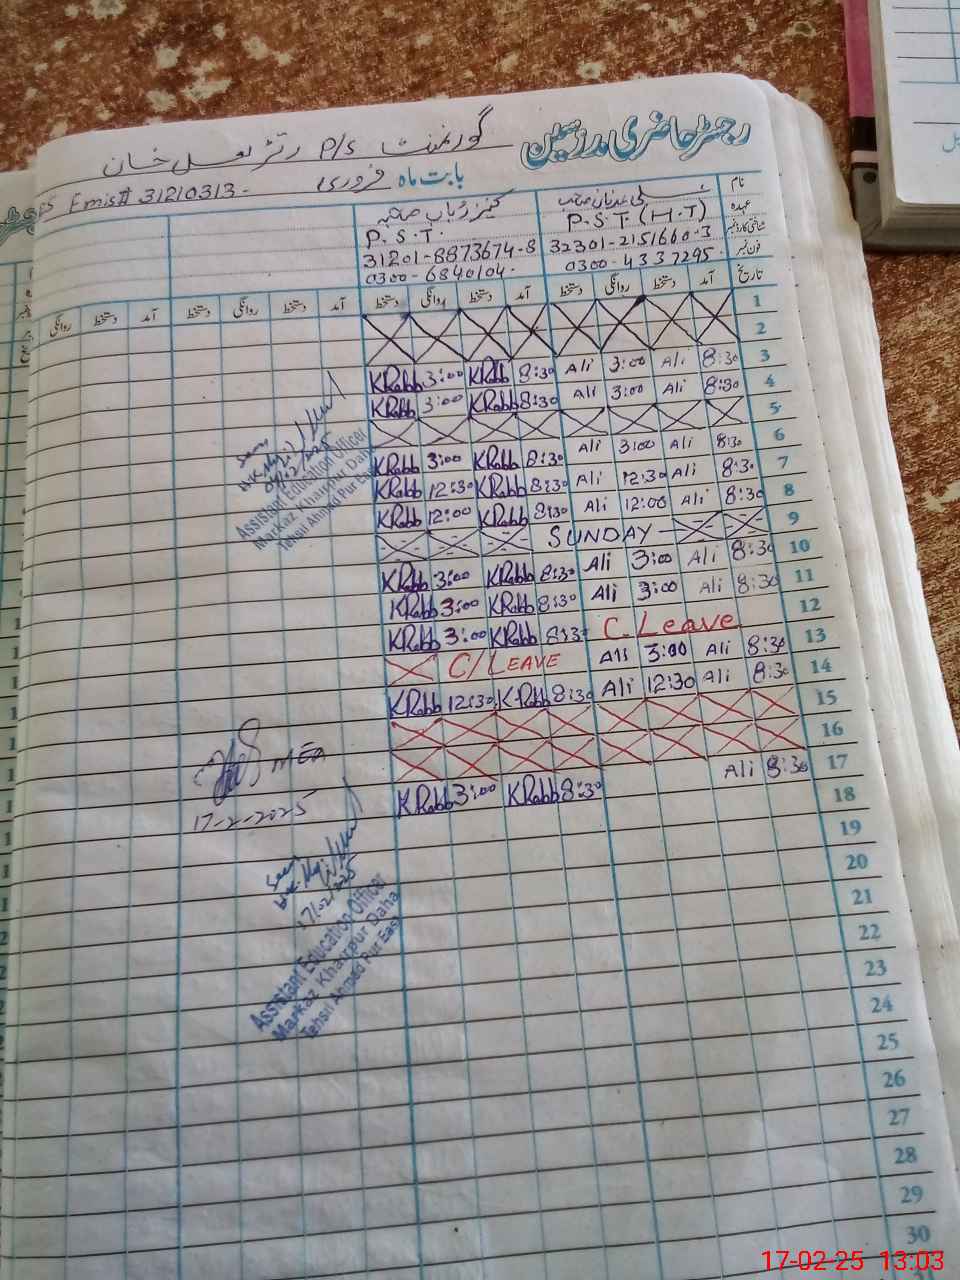 رجسٹر حاضری مدرسین
گورنمنٹ P/S رتڑ لعل خان
بابت ماہ فروری Emis# 31210313-
نام
عہدہ P.S.T (H.T) P.S.T.
شناختی کارڈ نمبر 32301-2151660-3 31201-8873674-8
فون نمبر 0300-4337295- 0300-6840104-
تاریخ آمد دستخط روانگی دستخط آمد دستخط روانگی دستخط آمد دستخط روانگی آمد دستخط روانگی
1
2
3 8:30 Ali 3:00 Ali 8:30 KRabb 3:00 KRabb
4 8:30 Ali 3:00 Ali 8:30 KRabb 3:00 KRabb
5
6 8:30 Ali 3:00 Ali 8:30 KRabb 3:00 KRabb
7 8:30 Ali 12:30 Ali 8:30 KRabb 12:30 KRabb
8 8:30 Ali 12:00 Ali 8:30 KRabb 12:00 KRabb
9 SUNDAY
10 8:30 Ali 3:00 Ali 8:30 KRabb 3:00 KRabb
11 8:30 Ali 3:00 Ali 8:30 KRabb 3:00 KRabb
12 C. Leave 8:30 KRabb 3:00 KRabb
13 8:30 Ali 3:00 Ali C/LEAVE
14 8:30 Ali 12:30 Ali 8:30 KRabb 12:30 KRabb
15
16
17 8:30 Ali 8:30 KRabb 3:00 KRabb
18
19
20
21
22
23
24
25
26
27
28
29
30
Assistant Education Officer
Markaz Khairpur Daha
Tehsil Ahmed Pur East
MEA
17-2-2025
17/02/2025
Assistant Education Officer
Markaz Khairpur Daha
Tehsil Ahmed Pur East
17-02-25 13:03